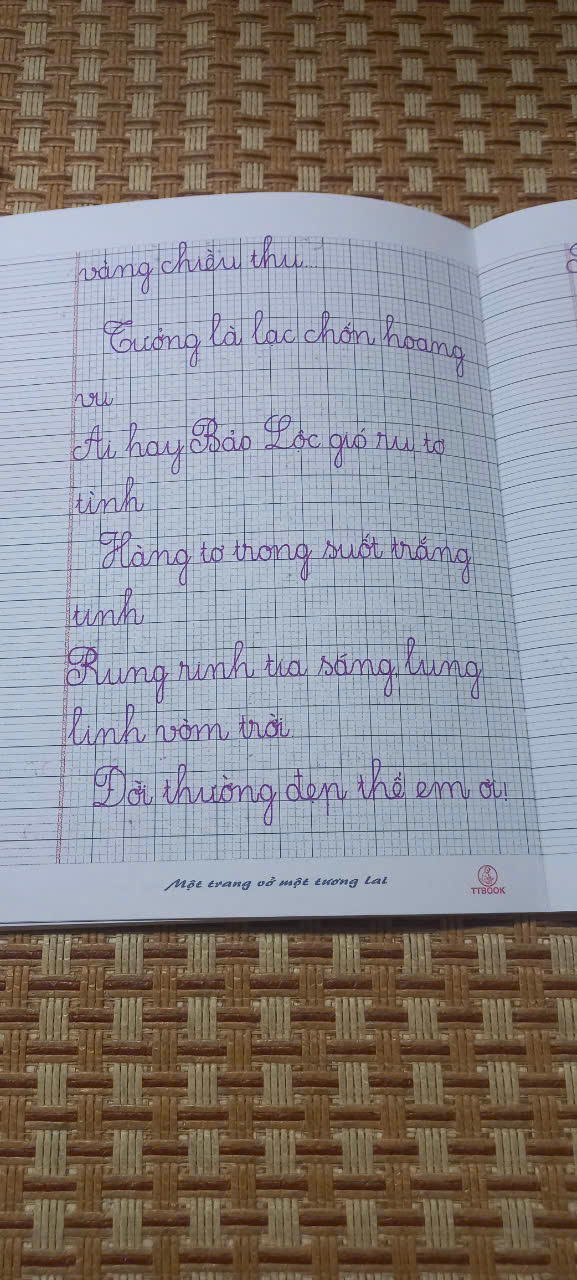 vàng chiều thu...
Tưởng là lạc chốn hoang
vu
Ai hay Bảo Lộc gió ru tơ
tình
Hàng tơ trong suốt trắng
tinh
Rung rinh tia sáng, lung
linh vòm trời
Đời thường đẹp thế em ơi!
Một trang vở một tương lai
TTBOOK